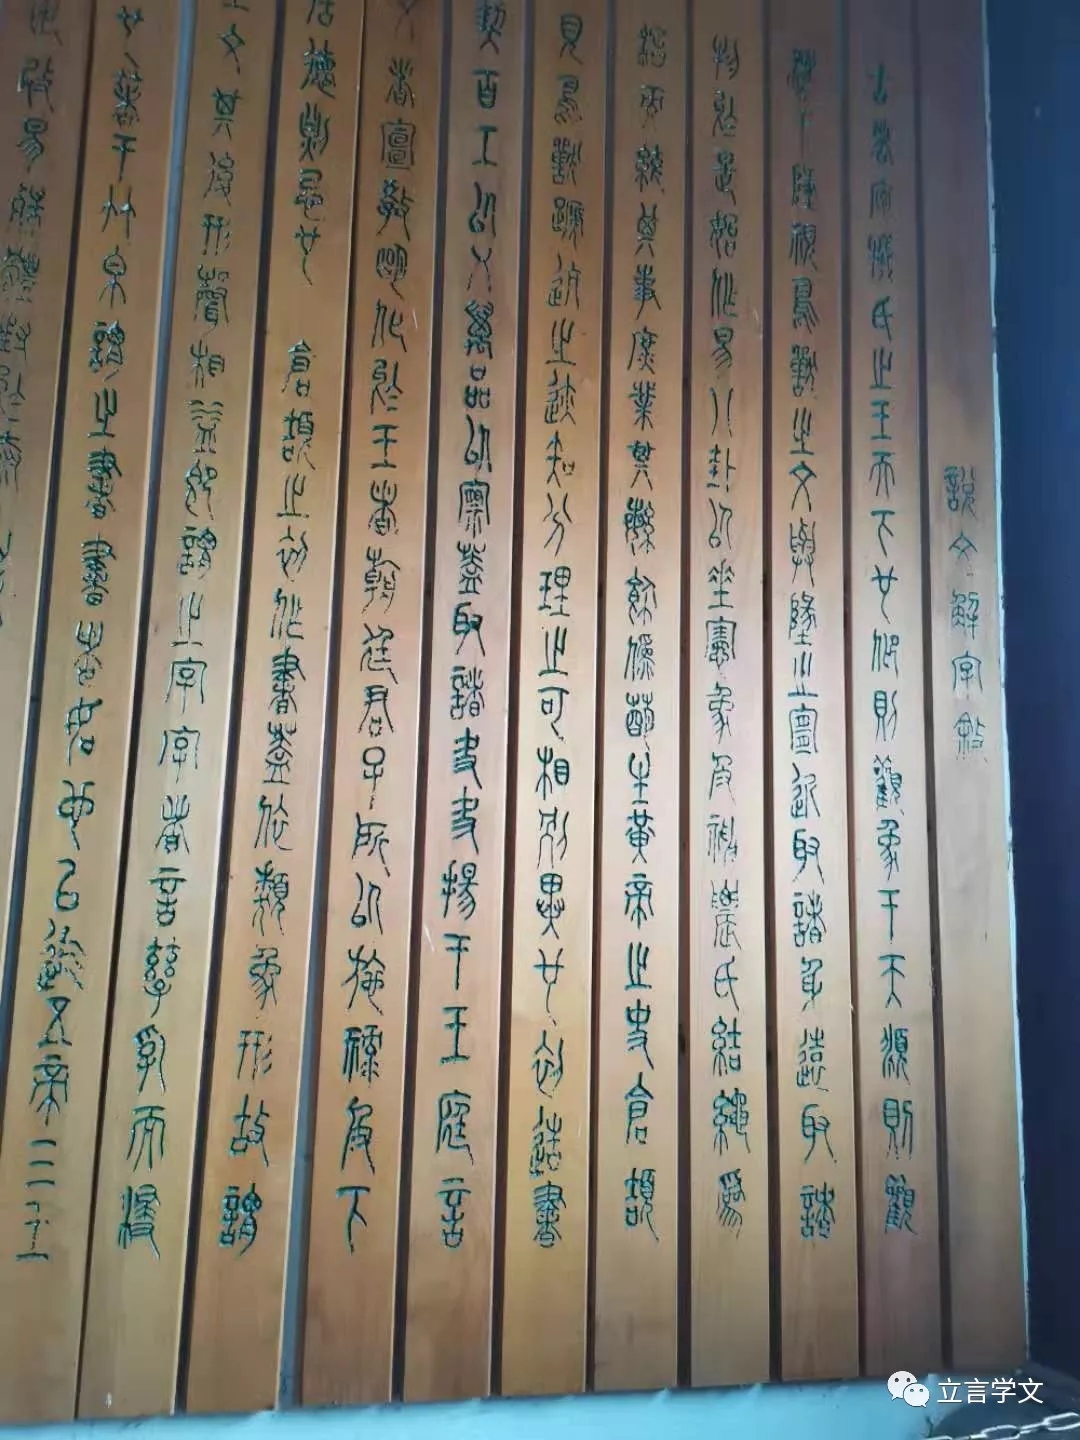 說文解字敘
古者庖犧氏之王天下也仰則觀象于天頫則觀
法于地視鳥獸之文與地之宜近取諸身遠取諸
物於是始作易八卦以垂憲象及神農氏結繩爲
治而統其事庶業其繁飾僞萌生黃帝之史倉頡
見鳥獸蹏迒之迹知分理之可相別異也初造書
契百工以乂萬品以察蓋取諸夬夬揚于王庭言
文者宣教明化於王者朝廷君子所以施祿及下
居德則忌也 倉頡之初作書蓋依類象形故謂
之文其後形聲相益即謂之字字者言孳乳而浸
也著于竹帛謂之書書者如也以迄五帝三王
改易殊體封於泰
立言学文